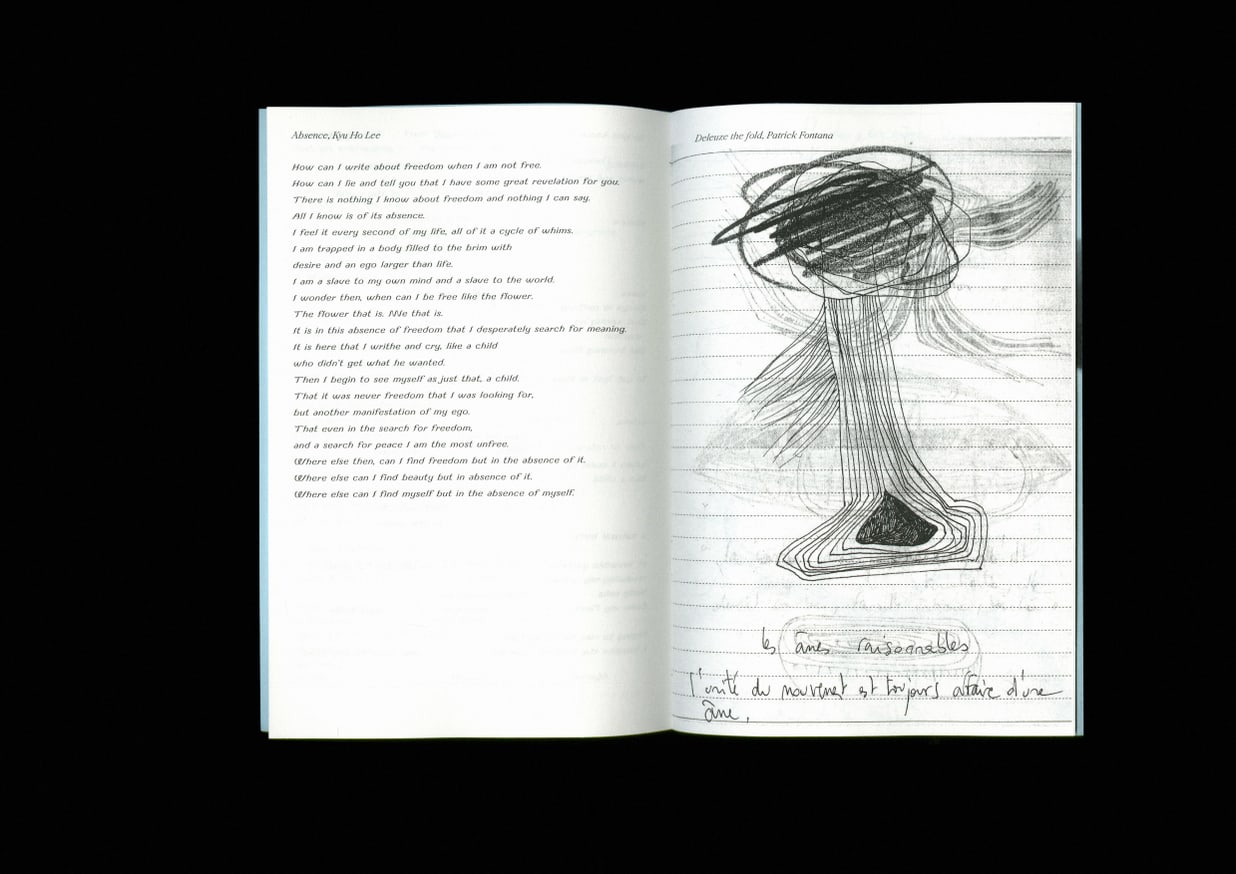 Absence, Kyu Ho Lee
How can I write about freedom when I am not free.
How can I lie and tell you that I have some great revelation for you.
There is nothing I know about freedom and nothing I can say.
All I know is of its absence.
I feel it every second of my life, all of it a cycle of whims.
I am trapped in a body filled to the brim with
desire and an ego larger than life.
I am a slave to my own mind and a slave to the world.
I wonder then, when can I be free like the flower.
The flower that is. We that is.
It is in this absence of freedom that I desperately search for meaning.
It is here that I writhe and cry, like a child
who didn't get what he wanted.
Then I begin to see myself as just that, a child.
That it was never freedom that I was looking for,
but another manifestation of my ego.
That even in the search for freedom,
and a search for peace I am the most unfree.
Where else then, can I find freedom but in the absence of it.
Where else can I find beauty but in absence of it.
Where else can I find myself but in the absence of myself.
Deleuze the fold, Patrick Fontana
les ânes raisonnables
l'unité du mouvement est toujours affaire d'une
âne.